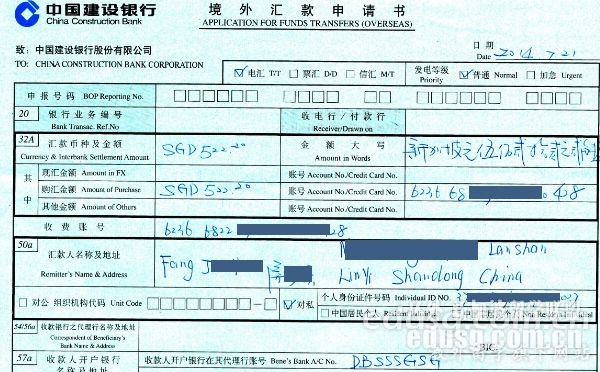 中国建设银行 境外汇款申请书
China Construction Bank APPLICATION FOR FUNDS TRANSFERS (OVERSEAS)
致：中国建设银行股份有限公司 日期
TO: CHINA CONSTRUCTION BANK CORPORATION Date 2014.7.21
☑电汇 T/T □票汇 D/D □信汇 M/T 发电等级 Priority ☑普通 Normal □加急 Urgent
申报号码 BOP Reporting No.
20 银行业务编号 Bank Transac. Ref.No 收电行/付款行 Receiver/Drawn on
32A 汇款币种及金额 Currency & Interbank Settlement Amount SGD 522.20 金额大写 Amount in Words
其中 现汇金额 Amount in FX 账号 Account No./Credit Card No.
购汇金额 Amount of Purchase SGD 522.20 账号 Account No./Credit Card No. 6236 68 428
其他金额 Amount of Others 账号 Account No./Credit Card No.
收费账号 6236 6822 28
50a 汇款人名称及地址 Remitter's Name & Address Fang J Lanshan
LinYi Shandong China
□对公 组织机构代码 Unit Code ☑对私 个人身份证件号码 Individual ID NO. 3
□中国居民个人 Resident Individual □中国非居民个人 Non-Resident Individual
54/56a 收款银行之代理行名称及地址 Correspondent of Beneficiary's Bank Name & Address
57a 收款人开户银行名称及地址 收款人开户银行在其代理行账号 Bene's Bank A/C No. DBSSSGSG